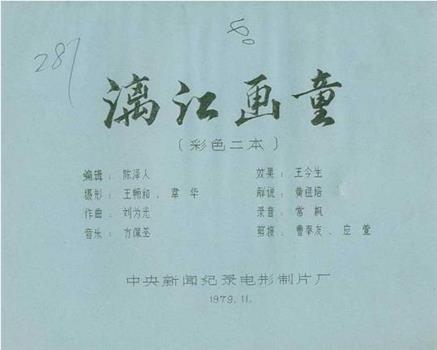 287
80
漓江画童
(彩色二本)
编辑：陈泽人 效果：王今生
摄影：王畅韶、韋华 解说：黄祖培
作曲：刘为光 录音：常帆
音乐：方佩荃 剪接：曹奉友、应萱
中央新闻纪录电影制片厂
1979.11.